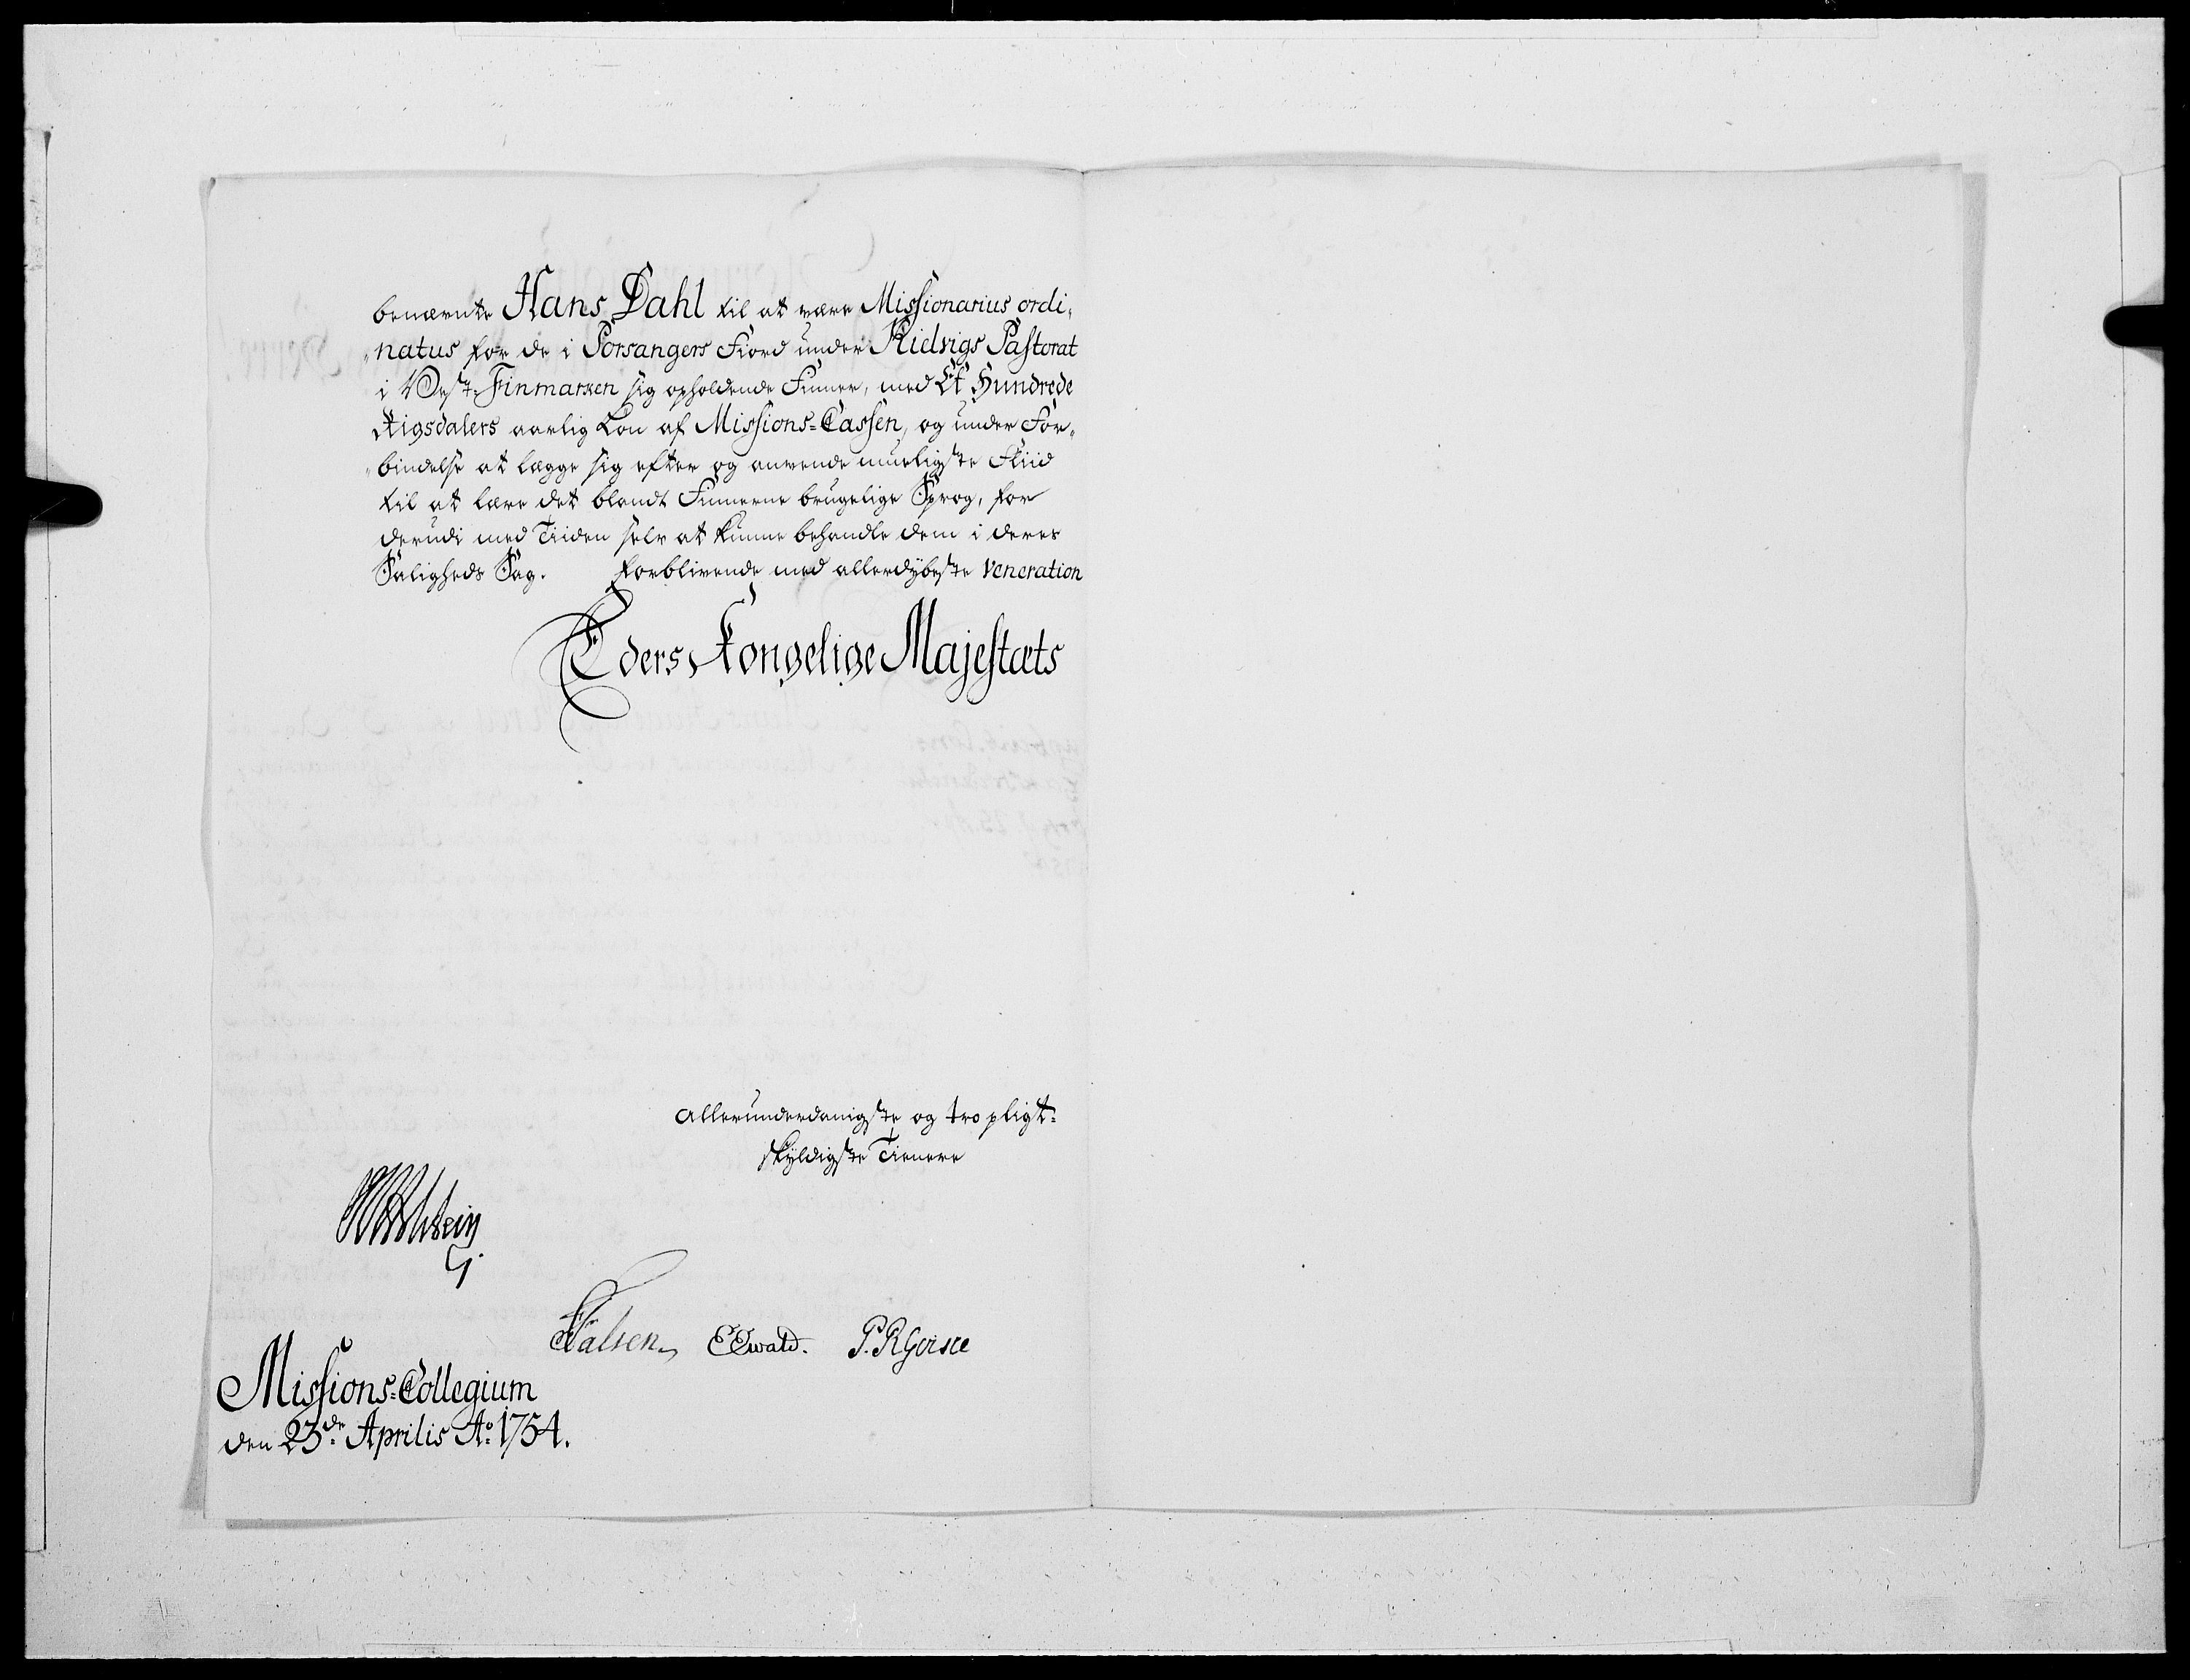 benævnte Hans Dahl til at være Missionarius ordi„
„natus for de i Porsangers Fiord under Kielvigs Pastorat
i West-Finmarken sig opholdende Finner, med Et Hundrede
Rigsdalers aarlig Løn af Missions-Cassen, og under For„
„bindelse at lægge sig efter og anvende mueligste Fliid
til at lære det blandt Finnerne brugelige Sprog, for
derudi med Tiiden selv at kunne behandle dem i deres
Saligheds Sag. Forblivende med allerdybeste Veneration
Eders Kongelige Majestæts
allerunderdanigste og tropligt-
skyldigste Tienere
Holstein
Falsen. EEwald.
Missions-Collegium
den 23de Aprilis Ao 1754.